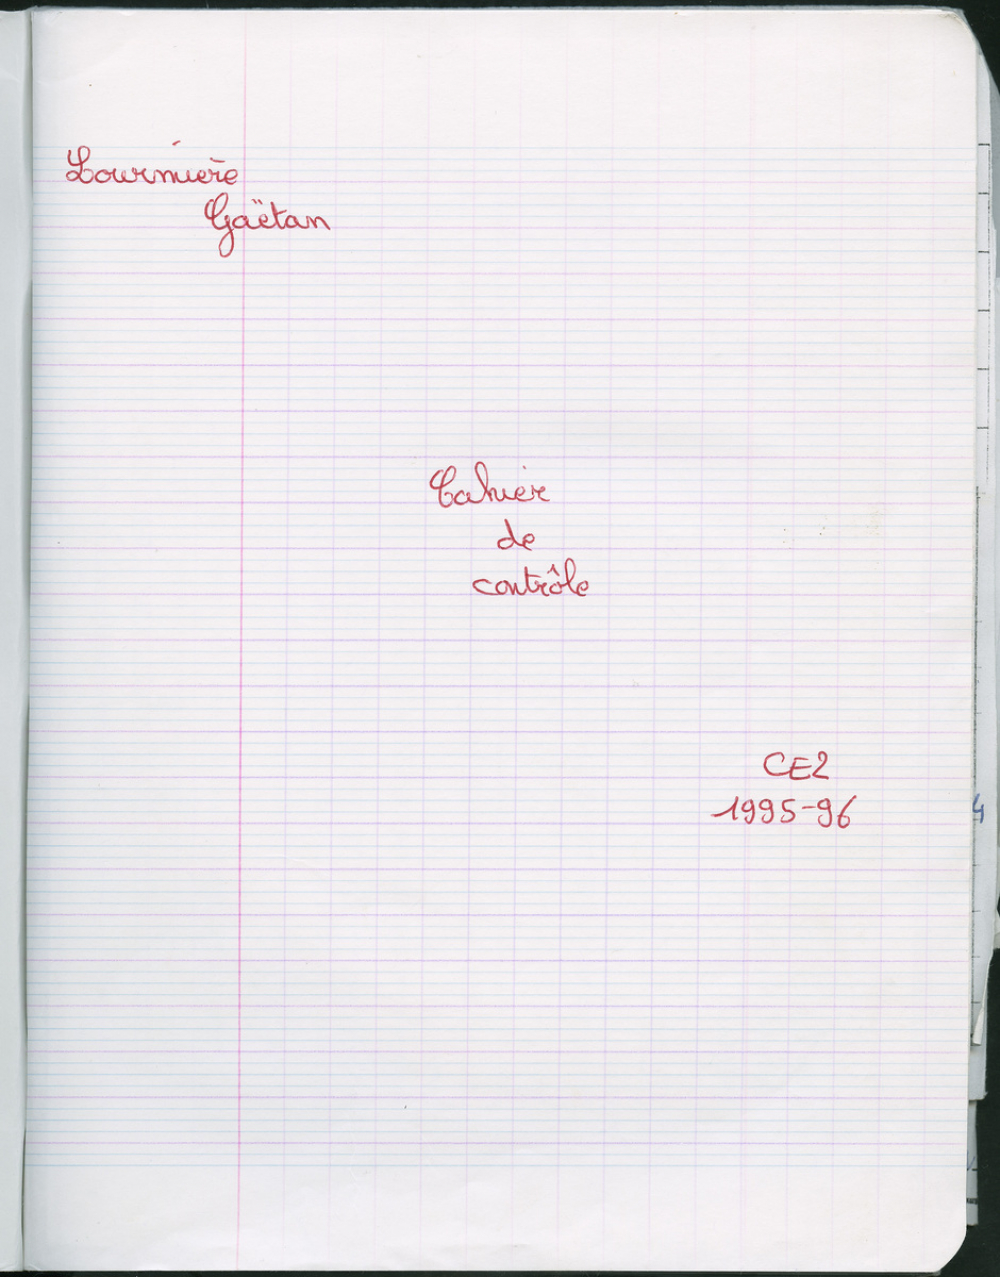 Lournière
Gaëtan
Cahier
de
contrôle
CE2
1995-96
4